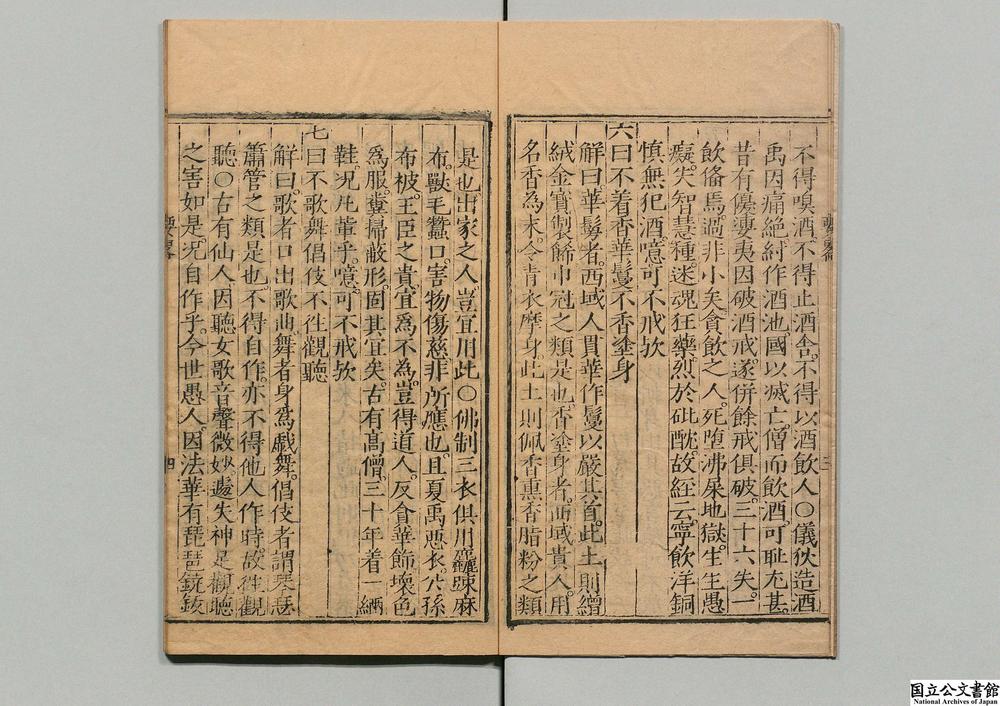 不得嗅酒。不得止酒舍。不得以酒飲人〇儀狄造酒
禹因痛絕紂作酒池。國以滅亡。僧而飲酒。可耻尤甚。
昔有優婆夷因破酒戒。遂併餘戒俱破。三十六失。一
飲俻焉。過非小矣。貪飲之人。死堕沸屎地獄。生生愚
癡。失智慧種。迷魂狂藥。烈於砒酖。故經云。寧飲洋銅
慎無犯酒。噫。可不戒欤
六曰不着香華鬘不香塗身
解曰。華鬘者。西域人貫華作鬘。以嚴其首。此土則繒
絨金寶製飾巾冠之類是也。香塗身者。西域貴人。用
名香為末。令青衣摩身。此土則佩香熏香脂粉之類
是也。出家之人。豈宜用此〇佛制三衣。俱用麤踈麻
布。獸毛蠶口。害物傷慈。非所應也。且夏禹惡衣。公孫
布被。王臣之貴。宜爲不為。豈得道人。反貪華飾。壞色
為服。糞掃蔽形。固其宜矣。古有髙僧。三十年着一緉
鞋。况凡軰乎。噫。可不戒欤
七曰不歌舞倡伎不往觀聽
解曰。歌者口出歌曲。舞者身爲戲舞。倡伎者謂琴瑟
簫管之類是也。不得自作。亦不得他人作時。故往觀
聽〇古有仙人。因聽女歌。音聲微妙。遽失神足。觀聽
之害如是。况自作乎。今世愚人。因法華有琵琶鐃鈸
要畧
三
要畧
四
国立公文書館
National Archives of Japan